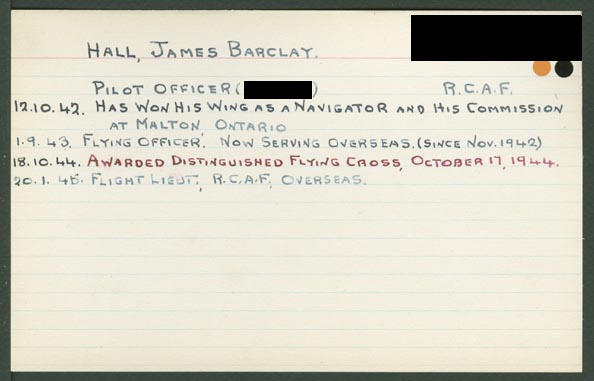 HALL, JAMES BARCLAY.
PILOT OFFICER ( ) R.C.A.F.
12.10.42. HAS WON HIS WING AS A NAVIGATOR AND HIS COMMISSION
AT MALTON, ONTARIO
1.9.43. FLYING OFFICER. NOW SERVING OVERSEAS. (SINCE NOV. 1942)
18.10.44. AWARDED DISTINGUISHED FLYING CROSS, OCTOBER 17, 1944.
20.1.45. FLIGHT LIEUT., R.C.A.F., OVERSEAS.